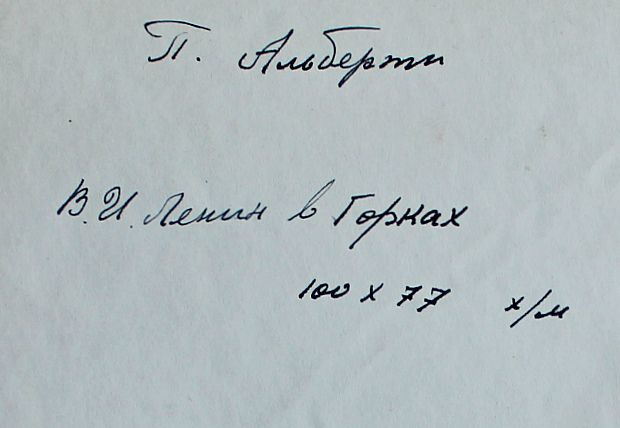 П. Альберти
В.И. Ленин в Горках
100 х 77 х/м